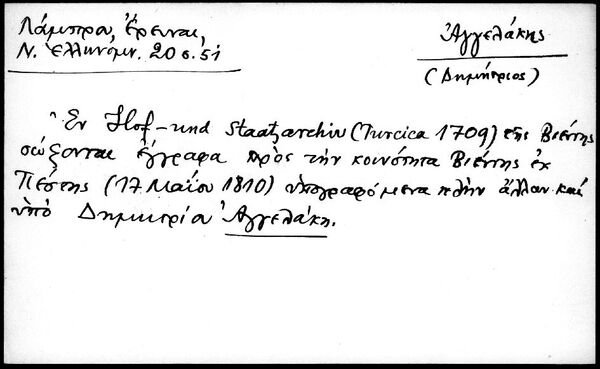 Λάμπρου, Ἔρευναι,
Ν. Ἑλληνόμν. 20 σ. 51
Ἀγγελάκης
(Δημήτριος)
Ἐν Hof-und Staatzarchiv (Turcica 1709) τῆς Βιέννης
σώζονται ἔγγραφα πρὸς τὴν κοινότητα Βιέννης ἐκ
Πέστης (17 Μαΐου 1810) ὑπογραφόμενα πλὴν ἄλλων καὶ
ὑπὸ Δημητρίου Ἀγγελάκη.